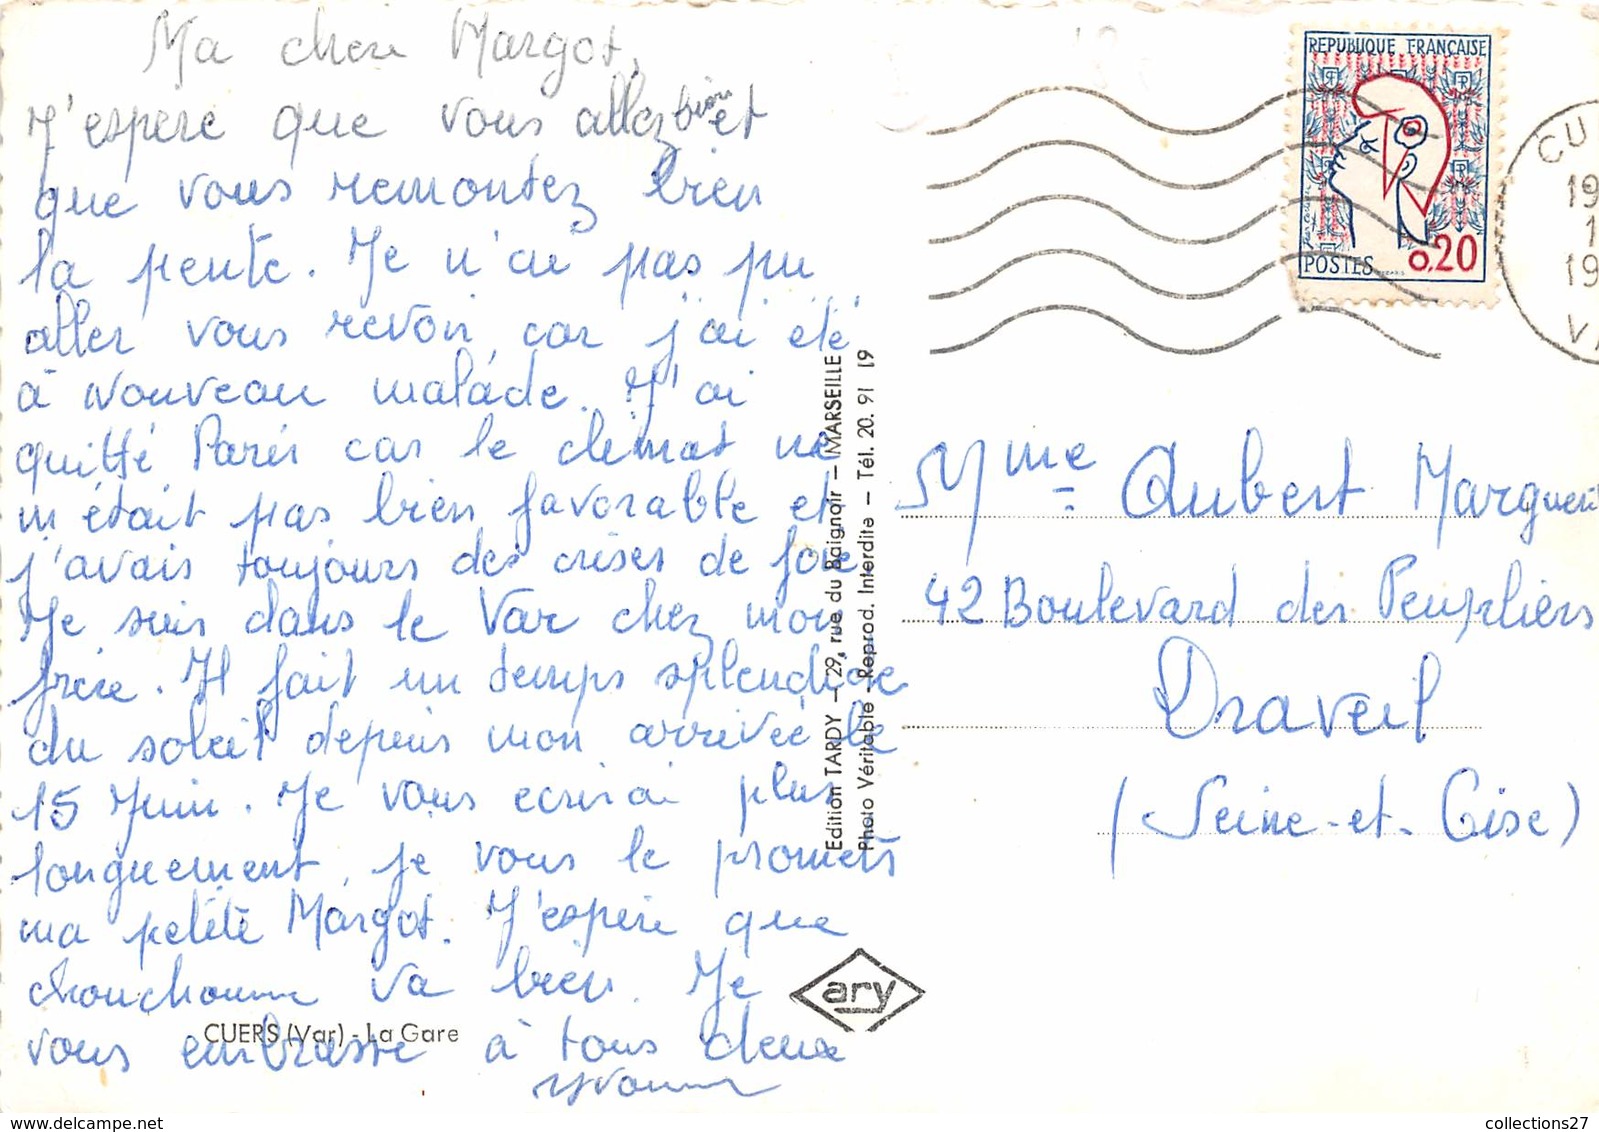 Ma chere Margot,
J'espère que vous allez bien et
que vous remontez bien
la pente. Je n'ai pas pu
aller vous revoir, car j'ai été
à nouveau malade. J'ai
quitté Paris car le climat ne
m'était pas bien favorable et
j'avais toujours des crises de foie
Je suis dans le Var chez mon
frère. Il fait un temps splendide
du soleil depuis mon arrivée le
15 Juin. Je vous ecrirai plus
longuement, je vous le promets
ma petite Margot. J'espère que
chouchoune va bien. Je
vous embrasse à tous deux
Yvonne
CUERS (Var) - La Gare
Edition TARDY - 29, rue du Baignoir - MARSEILLE
Photo Véritable - Reprod. Interdite - Tél. 20. 91 19
ary
REPUBLIQUE FRANÇAISE
POSTES 0,20
CU
19
1
19
VA
Mme Aubert Marguerit
42 Boulevard des Peupliers
Draveil
(Seine-et-Oise)
collections27